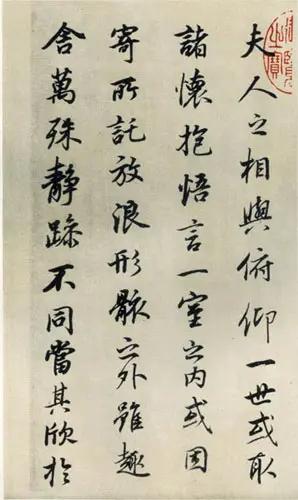 夫人之相與俯仰一世或取
諸懷抱悟言一室之內或因
寄所託放浪形骸之外雖趣
舍萬殊靜躁不同當其欣於